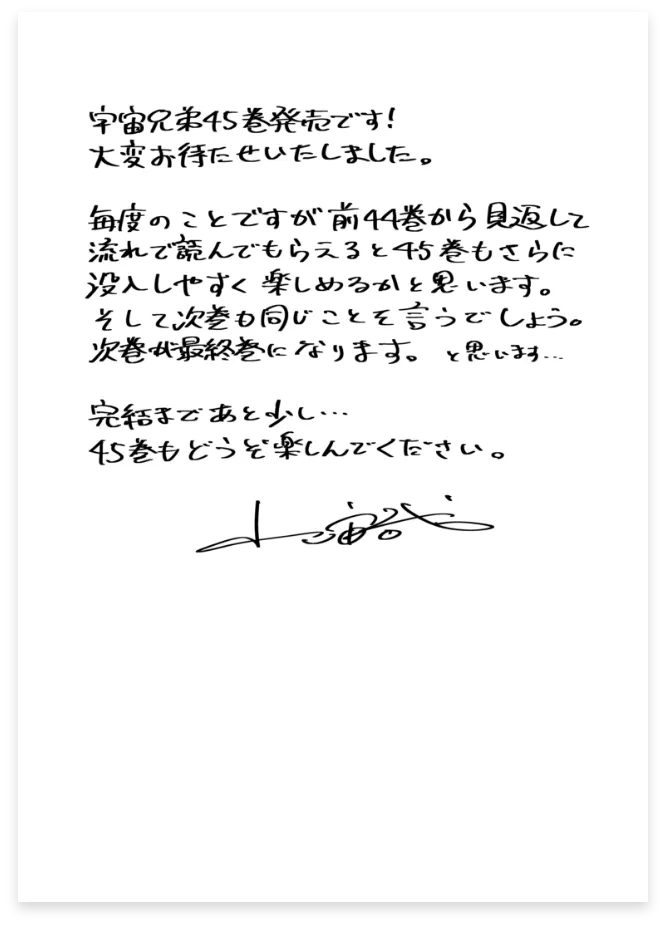 宇宙兄弟45巻発売です!
大変お待たせいたしました。
毎度のことですが前44巻から見返して
流れで読んでもらえると45巻もさらに
没入しやすく楽しめるかと思います。
そして次巻も同じことを言うでしょう。
次巻が最終巻になります。と思います…
完結まであと少し…
45巻もどうぞ楽しんでください。